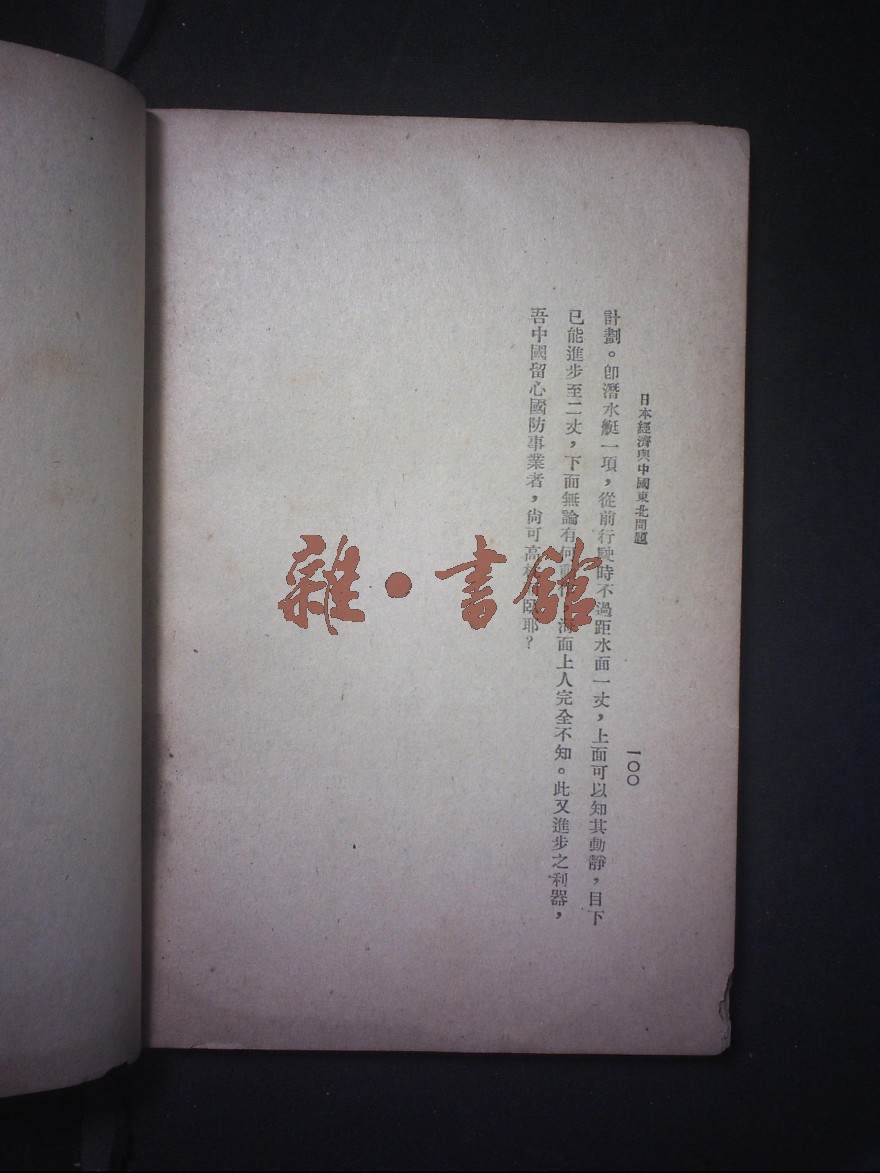 日本經濟與中國東北問題
一〇〇
計劃。卽潛水艇一項，從前行駛時不過距水面一丈，上面可以知其動靜，目下
已能進步至二丈，下面無論有何動作，海面上人完全不知。此又進步之利器，
吾中國留心國防事業者，尙可高枕而臥耶？
雜·書館